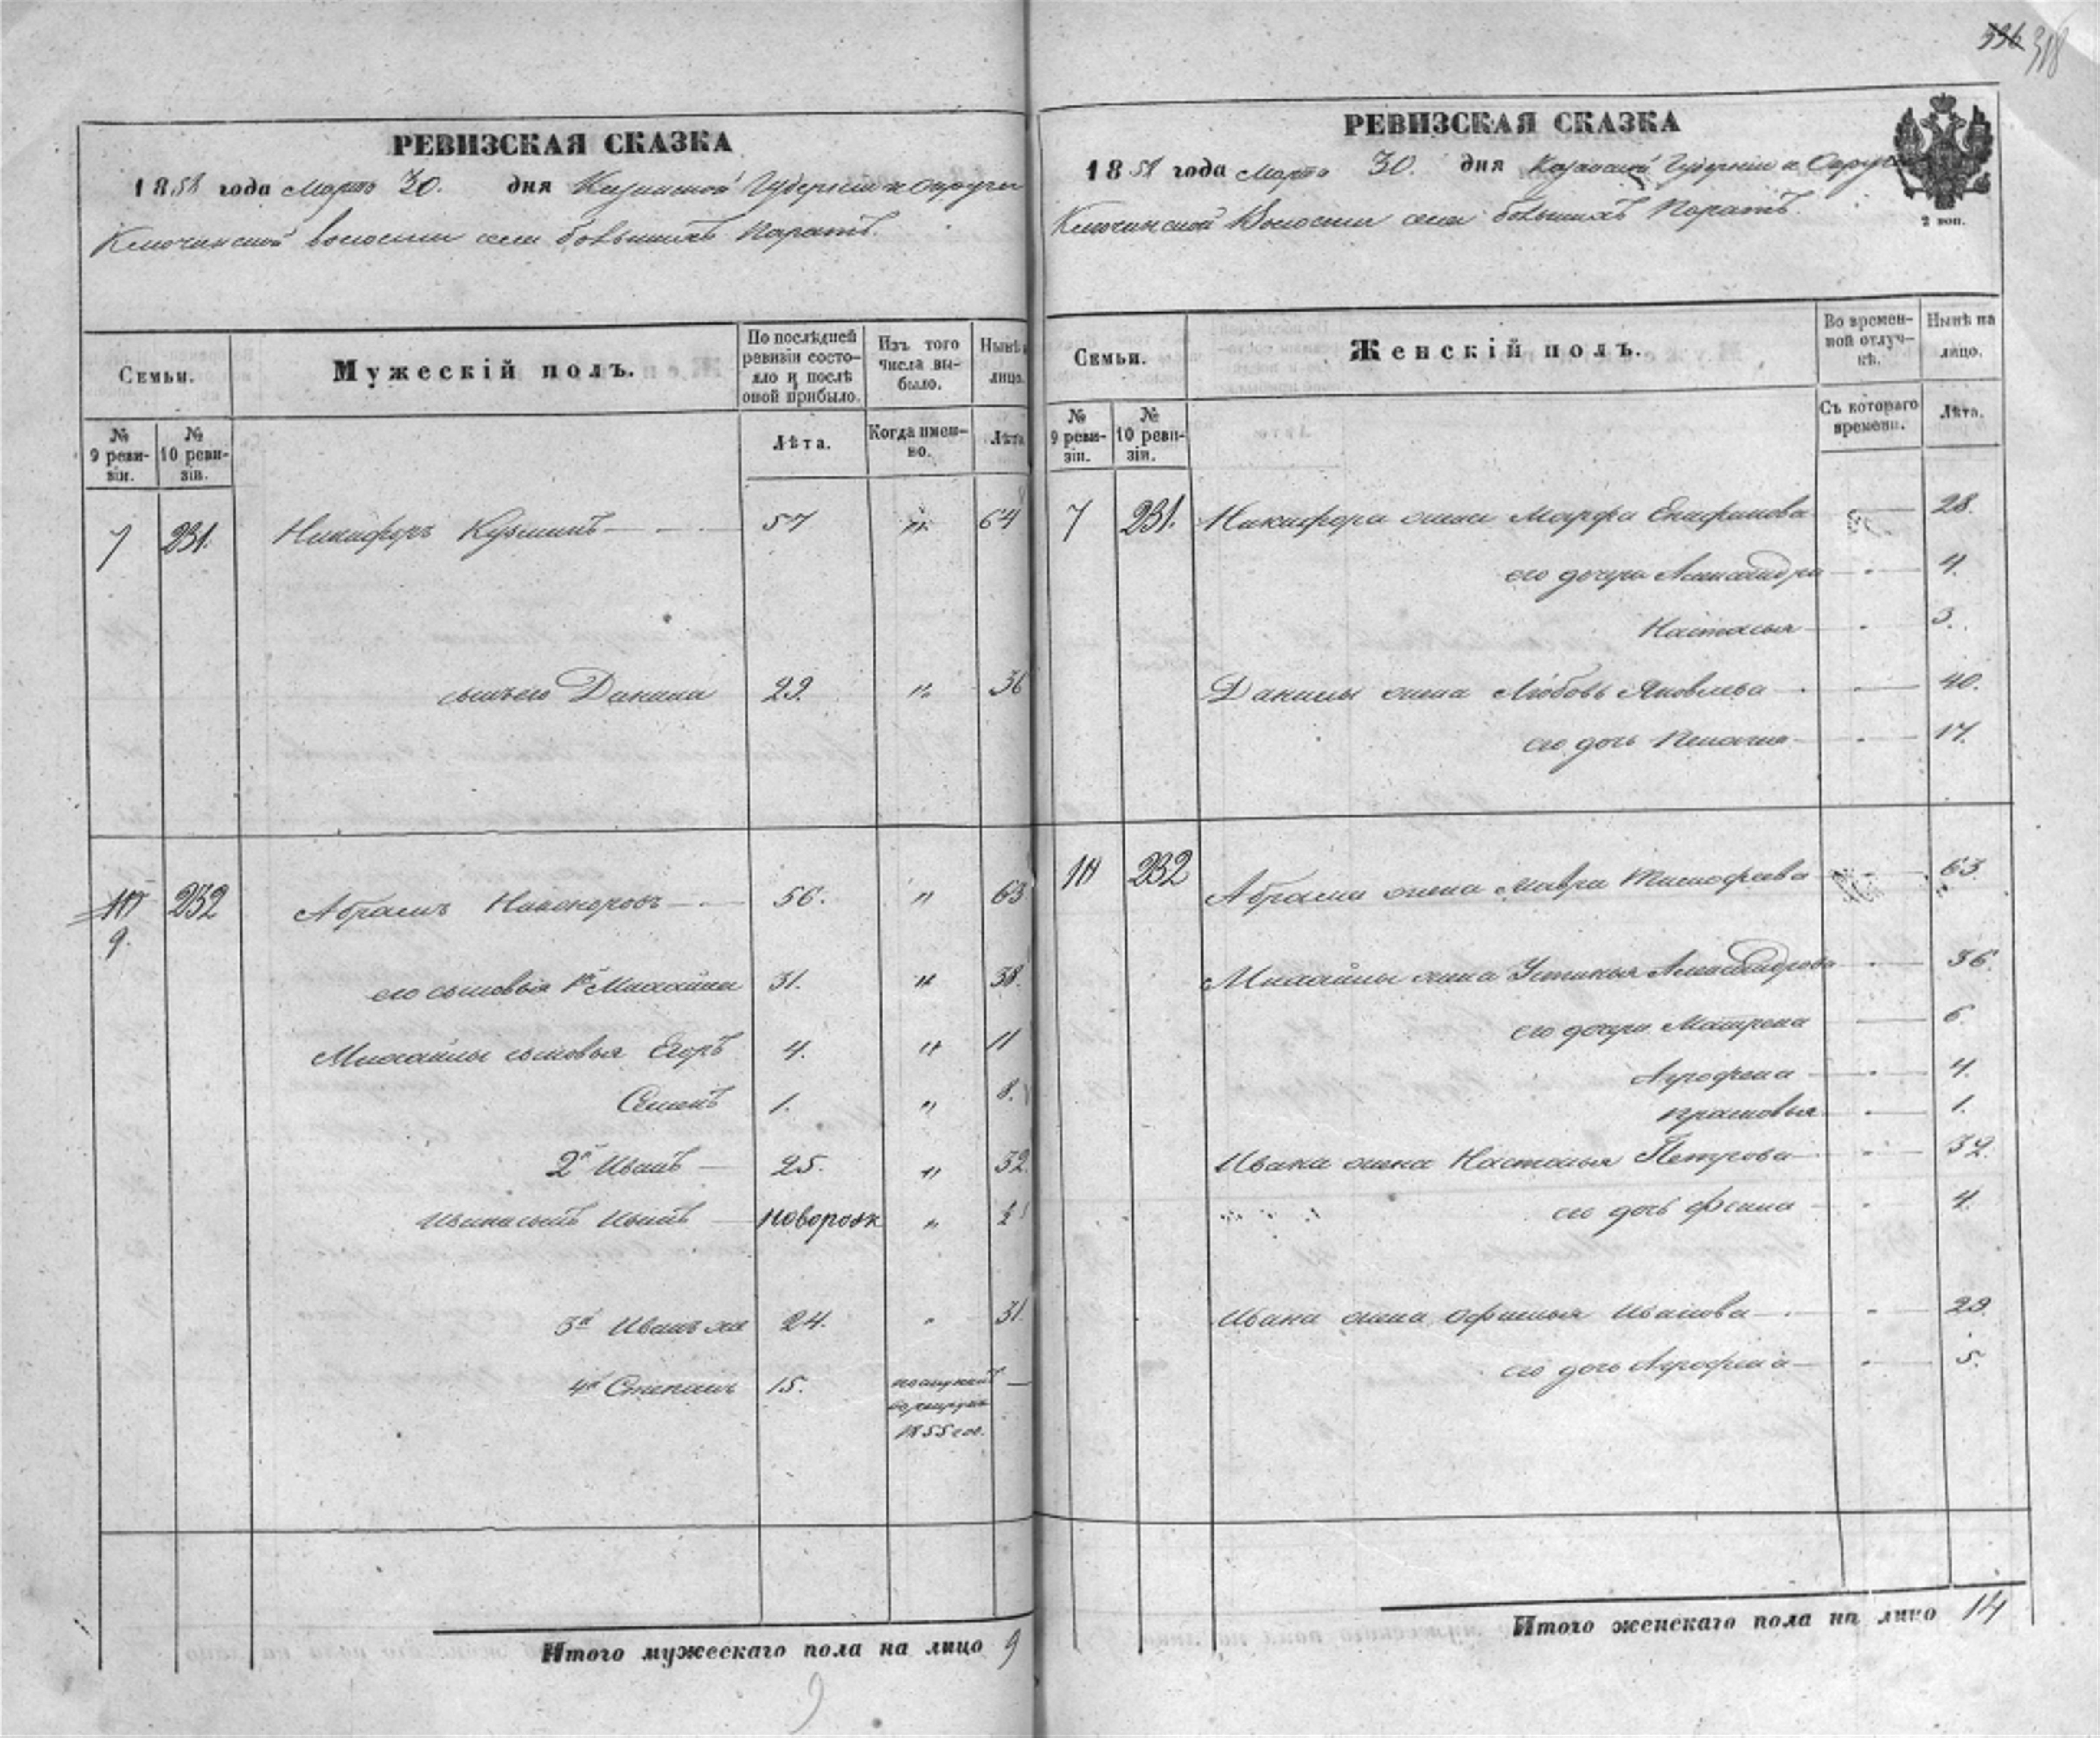 336 318
РЕВИЗСКАЯ СКАЗКА
1858 года Марта 30. дня Казанской Губернии и Округи
Ключинской волости села большихъ Паратъ.
Семьи.
Мужескій полъ.
По послѣдней ревизіи состояло и послѣ оной прибыло.
Изъ того числа выбыло.
Нынѣ на лицо.
№ 9 ревизіи.
№ 10 ревизіи.
Лѣта.
Когда именно.
Лѣта
7 231. Никифоръ Кузминъ 57 " 64
сынъ его Данила 29. " 36
10 9. 232 Абрамъ Никоноровъ 56. " 63
его сыновья 1й Михайла 31. " 38.
Михайлы сыновья Егоръ 4. " 11
Семенъ 1. " 8.
2й Иванъ 25. " 32.
Ивана сынъ Иванъ новорож "
3й Иванъ же 24. " 31
4й Степанъ 15. поступилъ в рекруты 1855 год. —
Итого мужескаго пола на лицо 9
РЕВИЗСКАЯ СКАЗКА
1858 года Марта 30. дня Казанской Губернии и Округи
Ключинской Волости села большихъ Паратъ.
2 коп.
Семьи.
Женскій полъ.
Во временной отлучкѣ.
Нынѣ на лицо.
№ 9 ревизіи.
№ 10 ревизіи.
Съ котораго времени.
Лѣта.
7 231. Никифора жена Марфа Епифанова 28.
его дочери Александра 4.
Настасья 3.
Данилы жена Любовь Яковлева 40.
его дочь Пелагия 17.
10 232 Абрама жена Мавра Тимофеева 63
Михайлы жена Устинья Александрова 36.
его дочери Матрена 6
Агрофена 4.
Прасковья 1.
Ивана жена Настасья Петрова 32.
его дочь Фекла 4.
Ивана жена Офимья Иванова 29
его дочь Агрофена 5.
Итого женскаго пола на лицо 14